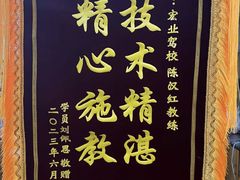 ：宏业驾校 陈汉红教练
技术精湛
精心施教
学员刘佩恩 敬赠
二〇二三年六月